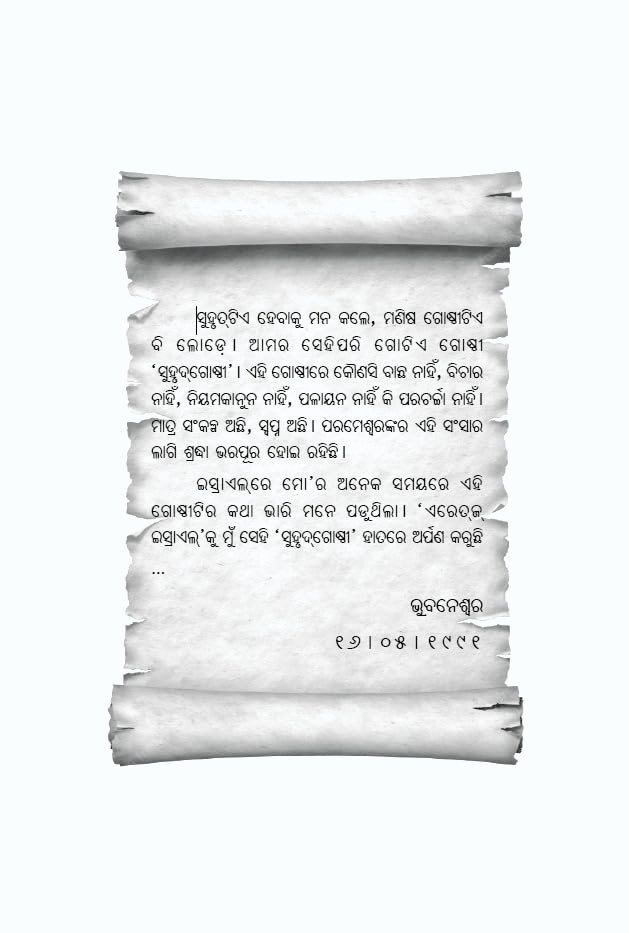 ସୁହୃତ୍‌ଟିଏ ହେବାକୁ ମନ କଲେ, ମଣିଷ ଗୋଷ୍ଠୀଟିଏ
ବି ଲୋଡ଼େ। ଆମର ସେହିପରି ଗୋଟିଏ ଗୋଷ୍ଠୀ
‘ସୁହୃଦ୍‌ଗୋଷ୍ଠୀ’। ଏହି ଗୋଷ୍ଠୀରେ କୌଣସି ବାଛ ନାହିଁ, ବିଚାର
ନାହିଁ, ନିୟମକାନୁନ ନାହିଁ, ପଳାୟନ ନାହିଁ କି ପରଚର୍ଚ୍ଚା ନାହିଁ।
ମାତ୍ର ସଂକଳ୍ପ ଅଛି, ସ୍ୱପ୍ନ ଅଛି। ପରମେଶ୍ୱରଙ୍କର ଏହି ସଂସାର
ଲାଗି ଶ୍ରଦ୍ଧା ଭରପୂର ହୋଇ ରହିଛି।
ଇସ୍ରାଏଲ୍‌ରେ ମୋ’ର ଅନେକ ସମୟରେ ଏହି
ଗୋଷ୍ଠୀଟିର କଥା ଭାରି ମନେ ପଡୁଥିଲା। ‘ଏରେତ୍‌ଜ୍
ଇସ୍ରାଏଲ୍’କୁ ମୁଁ ସେହି ‘ସୁହୃଦ୍‌ଗୋଷ୍ଠୀ’ ହାତରେ ଅର୍ପଣ କରୁଛି
...
ଭୁବନେଶ୍ୱର
୧୬।୦୫।୧୯୯୧